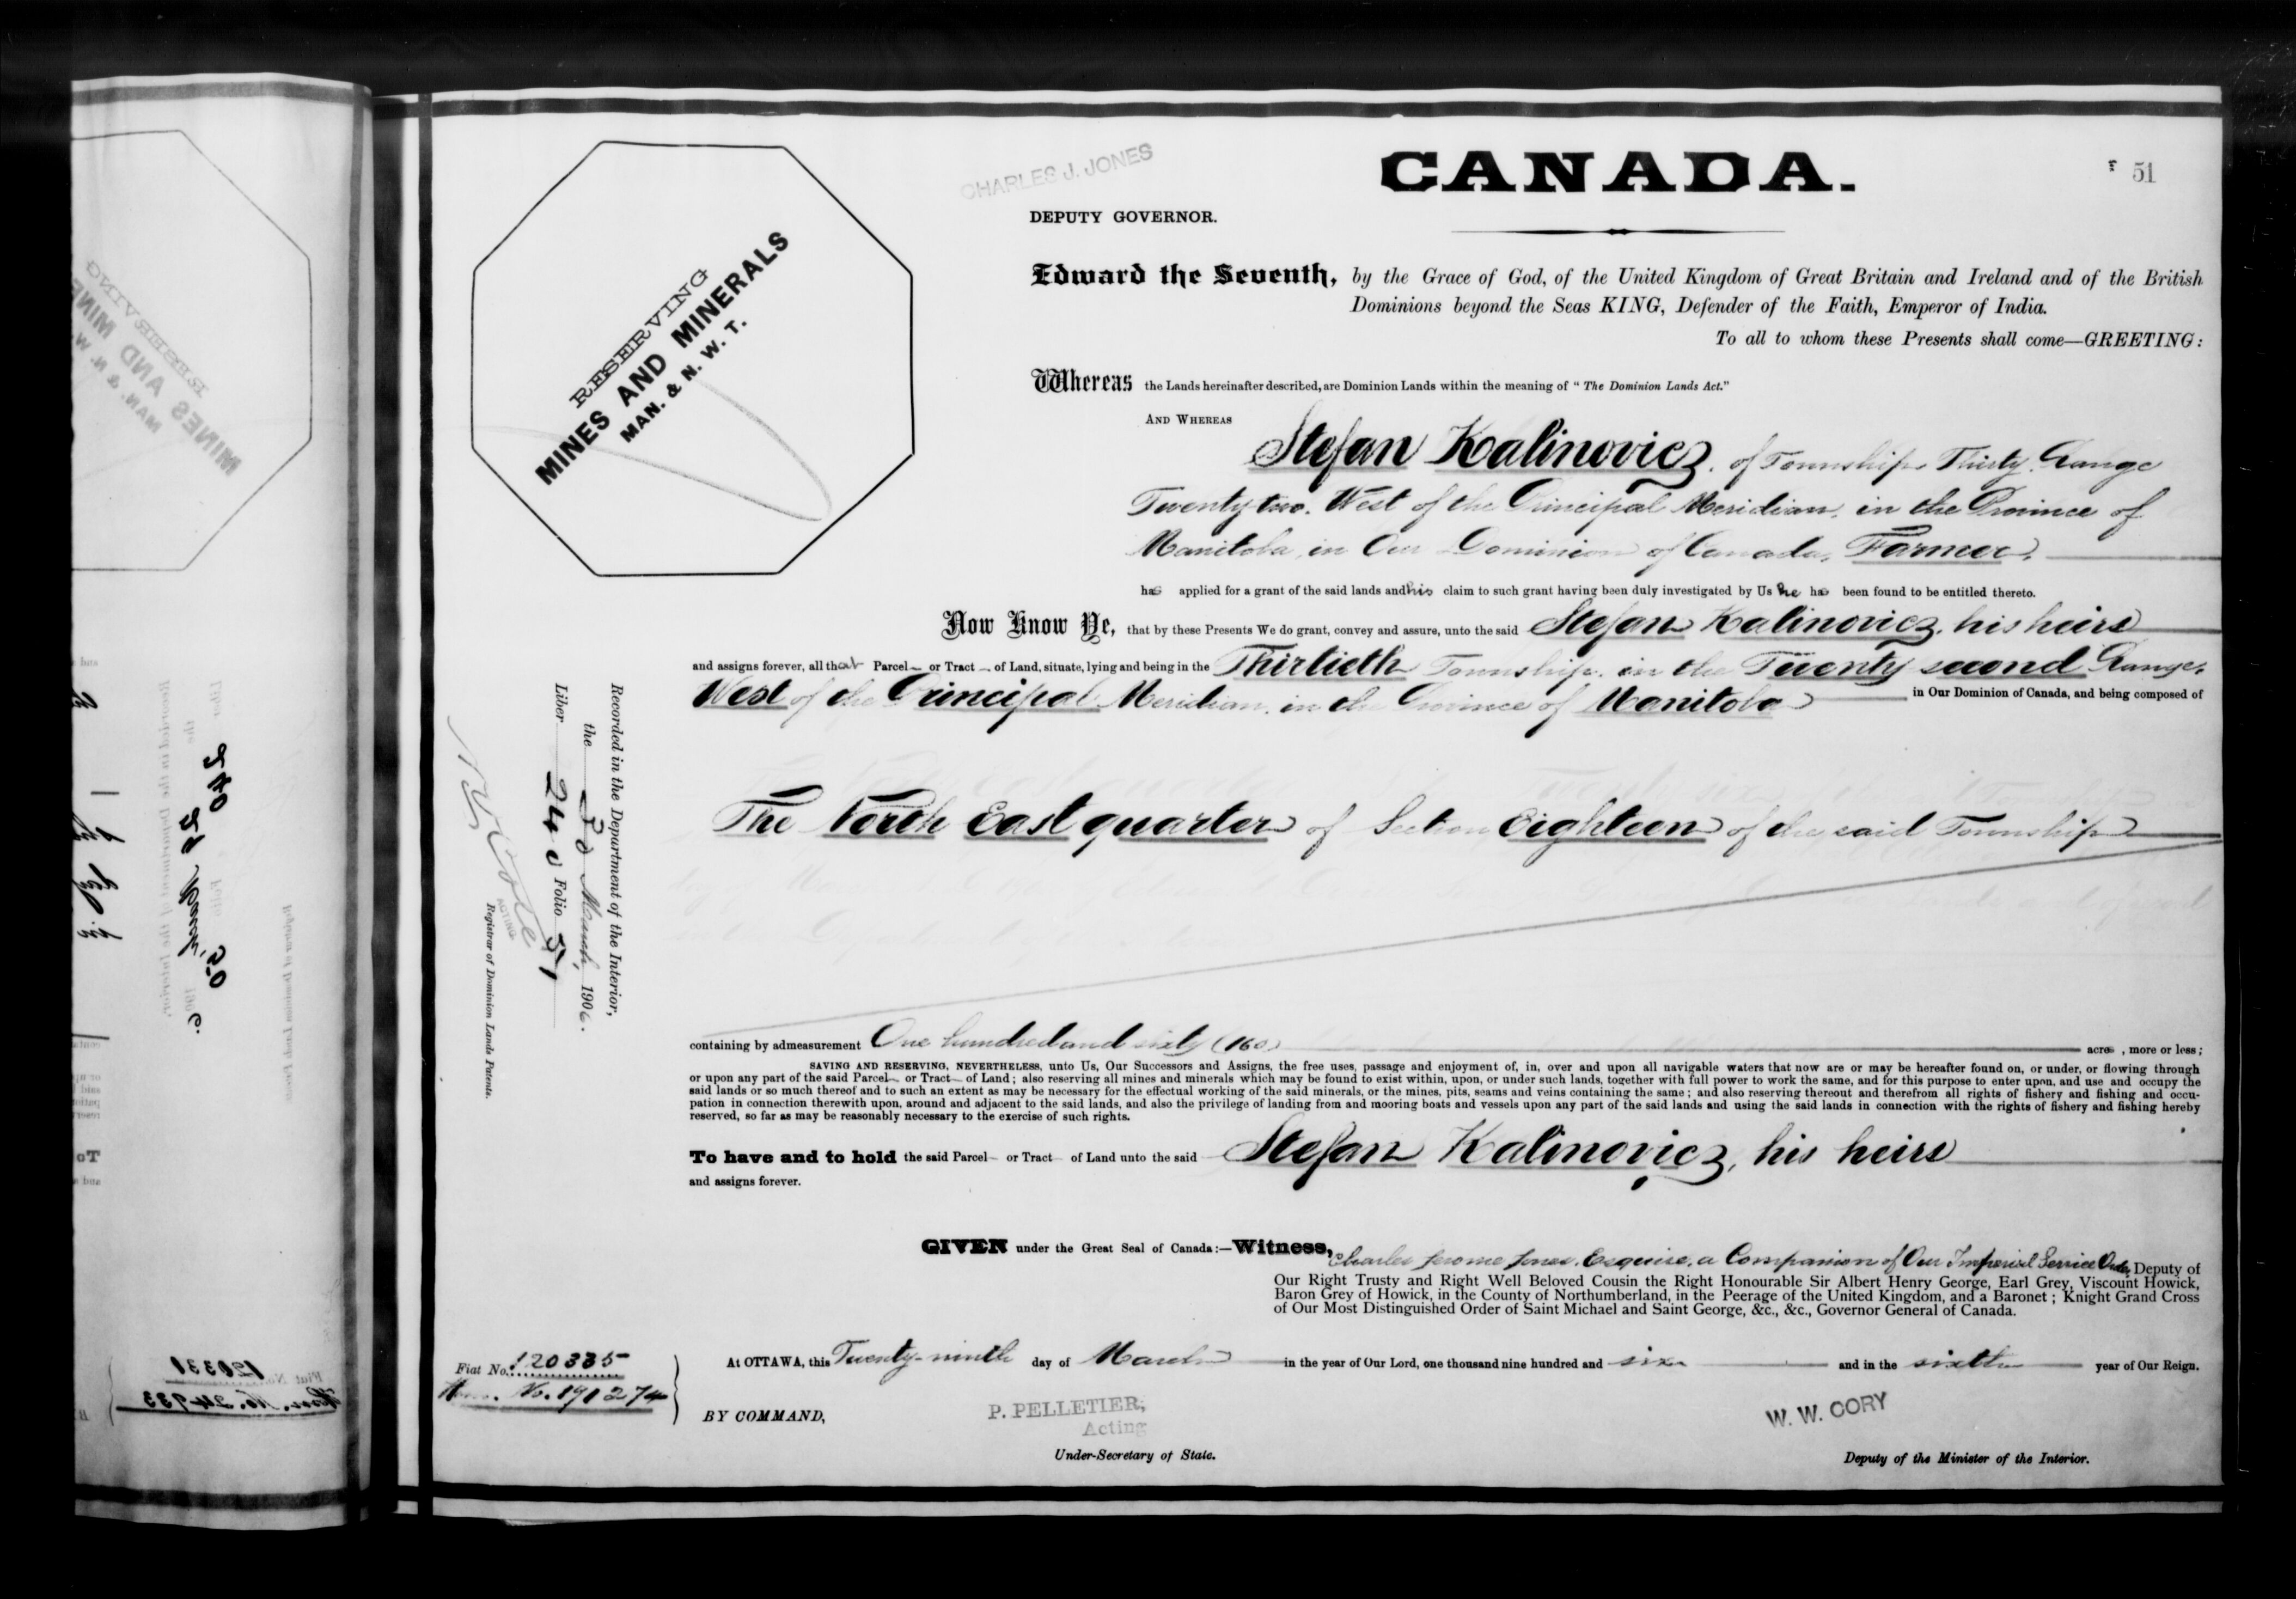 CANADA.
51
CHARLES J. JONES
DEPUTY GOVERNOR.
RESERVING
MINES AND MINERALS
MAN. & N. W. T.
Edward the Seventh, by the Grace of God, of the United Kingdom of Great Britain and Ireland and of the British
Dominions beyond the Seas KING, Defender of the Faith, Emperor of India.
To all to whom these Presents shall come—GREETING:
Whereas the Lands hereinafter described, are Dominion Lands within the meaning of "The Dominion Lands Act."
AND WHEREAS
Stefan Kalinovicz, of Township Thirty, Range
Twenty-two, West of the Principal Meridian, in the Province of
Manitoba, in Our Dominion of Canada, Farmer,
has applied for a grant of the said lands and his claim to such grant having been duly investigated by Us he has been found to be entitled thereto.
Now Know Ye, that by these Presents We do grant, convey and assure, unto the said Stefan Kalinovicz, his heirs
and assigns forever, all that Parcel or Tract of Land, situate, lying and being in the Thirtieth Township, in the Twenty-second Range,
West of the Principal Meridian, in the Province of Manitoba in Our Dominion of Canada, and being composed of
The North East quarter of Section Eighteen of the said Township
containing by admeasurement One hundred and sixty (160) acres, more or less;
SAVING AND RESERVING, NEVERTHELESS, unto Us, Our Successors and Assigns, the free uses, passage and enjoyment of, in, over and upon all navigable waters that now are or may be hereafter found on, or under, or flowing through
or upon any part of the said Parcel or Tract of Land; also reserving all mines and minerals which may be found to exist within, upon, or under such lands, together with full power to work the same, and for this purpose to enter upon, and use and occupy the
said lands or so much thereof and to such an extent as may be necessary for the effectual working of the said minerals, or the mines, pits, seams and veins containing the same; and also reserving thereout and therefrom all rights of fishery and fishing and occu-
pation in connection therewith upon, around and adjacent to the said lands, and also the privilege of landing from and mooring boats and vessels upon any part of the said lands and using the said lands in connection with the rights of fishery and fishing hereby
reserved, so far as may be reasonably necessary to the exercise of such rights.
To have and to hold the said Parcel or Tract of Land unto the said Stefan Kalinovicz, his heirs
and assigns forever.
GIVEN under the Great Seal of Canada:—Witness, Charles Jerome Jones, Esquire, a Companion of Our Imperial Service Order, Deputy of
Our Right Trusty and Right Well Beloved Cousin the Right Honourable Sir Albert Henry George, Earl Grey, Viscount Howick,
Baron Grey of Howick, in the County of Northumberland, in the Peerage of the United Kingdom, and a Baronet; Knight Grand Cross
of Our Most Distinguished Order of Saint Michael and Saint George, &c., &c., Governor General of Canada.
At OTTAWA, this Twenty-ninth day of March in the year of Our Lord, one thousand nine hundred and six and in the sixth year of Our Reign.
Fiat No. 120335
No. 191274
BY COMMAND,
P. PELLETIER,
Acting
Under-Secretary of State.
W. W. CORY
Deputy of the Minister of the Interior.
Recorded in the Department of the Interior,
the 30 March, 1906.
Liber 240 Folio 51
ACTING
Registrar of Dominion Lands Patents.